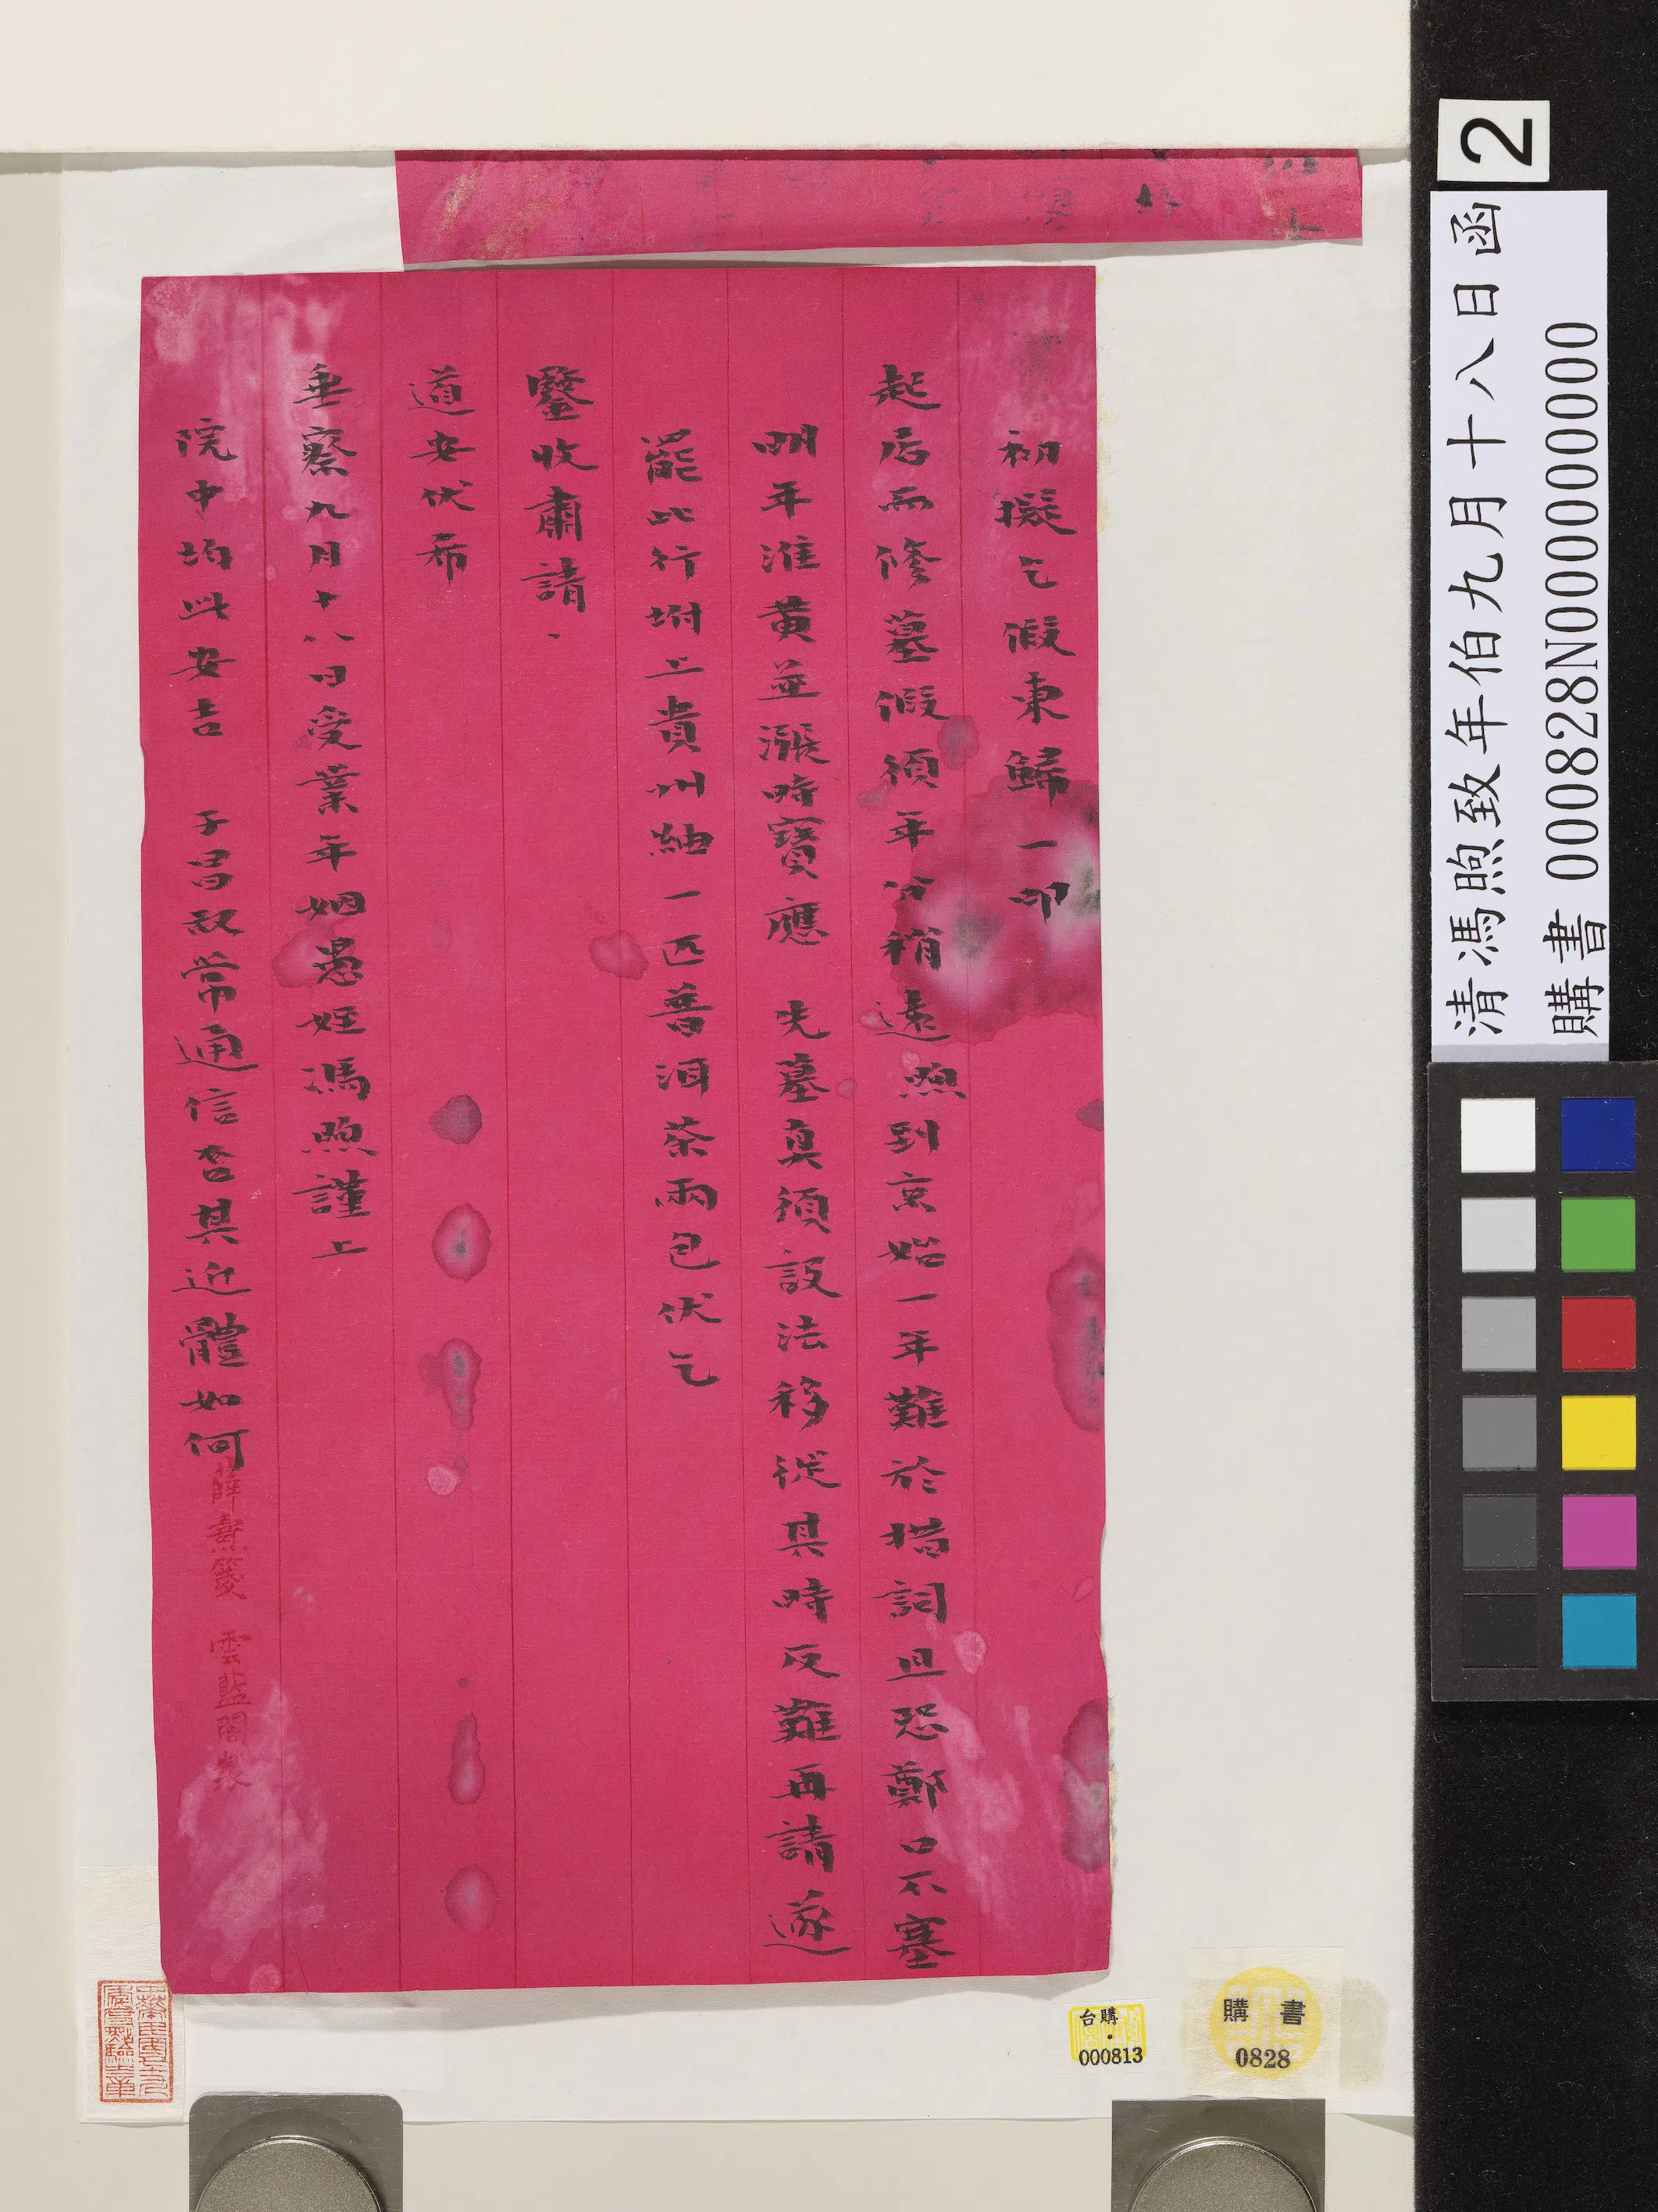 初擬乞假東歸一叩
起居而修墓假須年分稍遠煦到京始一年難於措詞且恐鄭口不塞
明年淮黃並漲時寶應 先墓真須設法移從其時反難再請遂
罷此行坿上貴州紬一匹普洱茶兩包伏乞
鑒收肅請、
道安伏希
垂察九月十八日受業年姻愚姪馮煦謹上
院中均此安吉 子昌叔常通信否其近體如何
薛燾箋 雲藍閣製
2
清馮煦致年伯九月十八日函
購書 000828N000000000
台購
000813
購書
0828